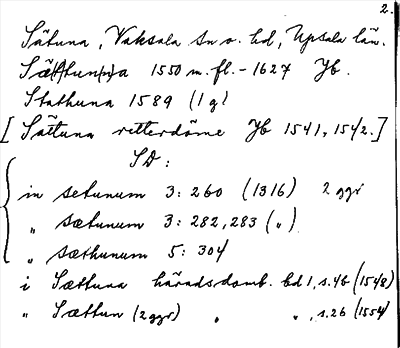 2.
Sätuna, Vaksala sn o. hd, Upsala län.
Sä(t)tun(n)a 1550 m. fl. - 1627 Jb.
Stathuna 1589 (1 g)
[Sättuna retterdöme Jb 1541, 1542.]
SD:
in setunum 3: 260 (1316) 2 ggr
„ sætunum 3: 282, 283 („)
„ sæthunum 5: 304
i Sættuna häradsdomb. bd 1, s. 46 (1548)
" Sættun (2 ggr) „ „, s. 26 (1554)